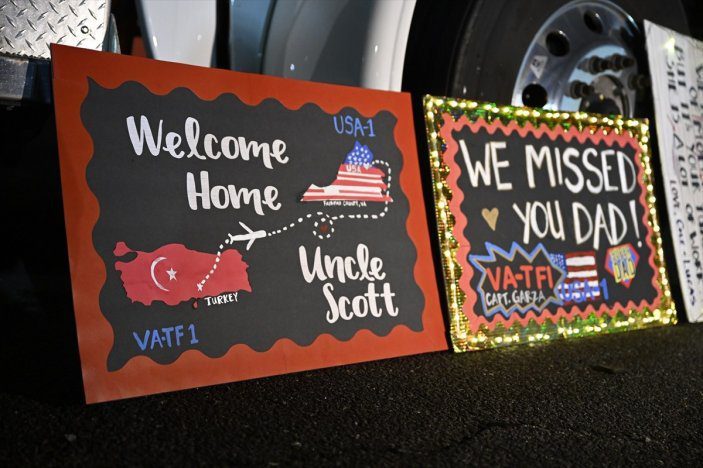 Welcome
Home
USA-1
USA
FAIRFAX COUNTY, VA
Uncle
Scott
TURKEY
VA-TF 1
WE MISSED
YOU DAD!
VA-TF1
CAPT. GARZA
USA-1
DAD